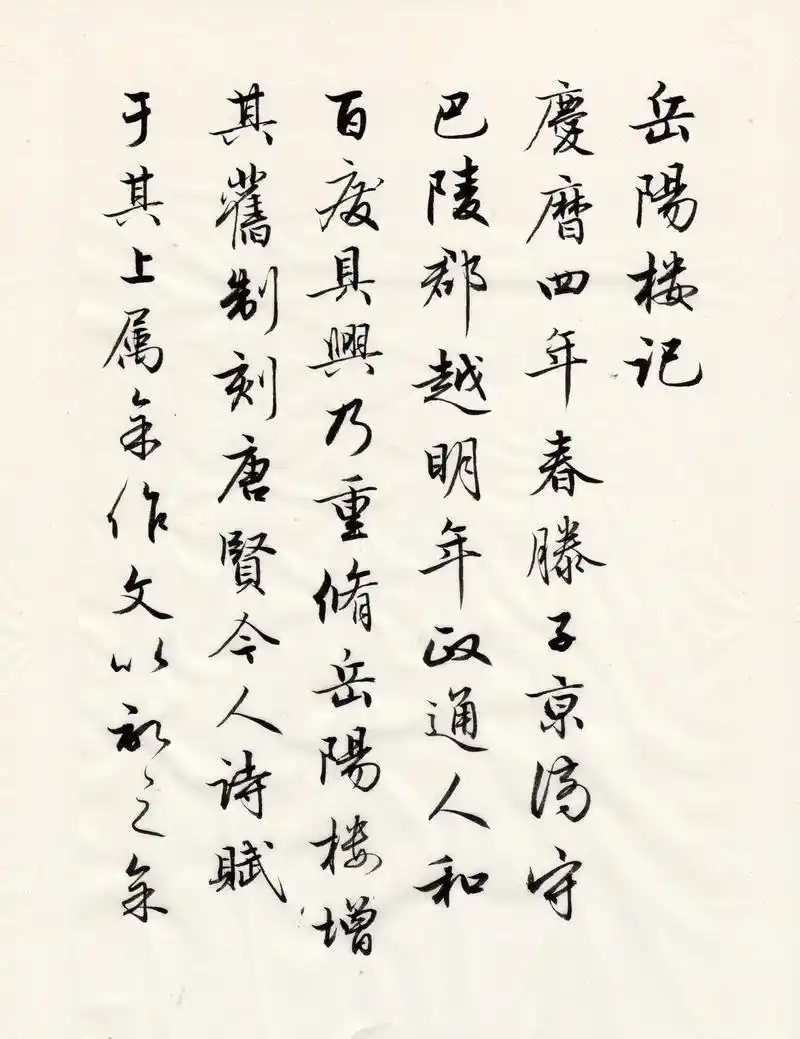 岳陽楼记
慶曆四年春滕子京謫守
巴陵郡越明年政通人和
百废具興乃重脩岳陽楼增
其舊制刻唐賢今人诗賦
于其上属余作文以记之余